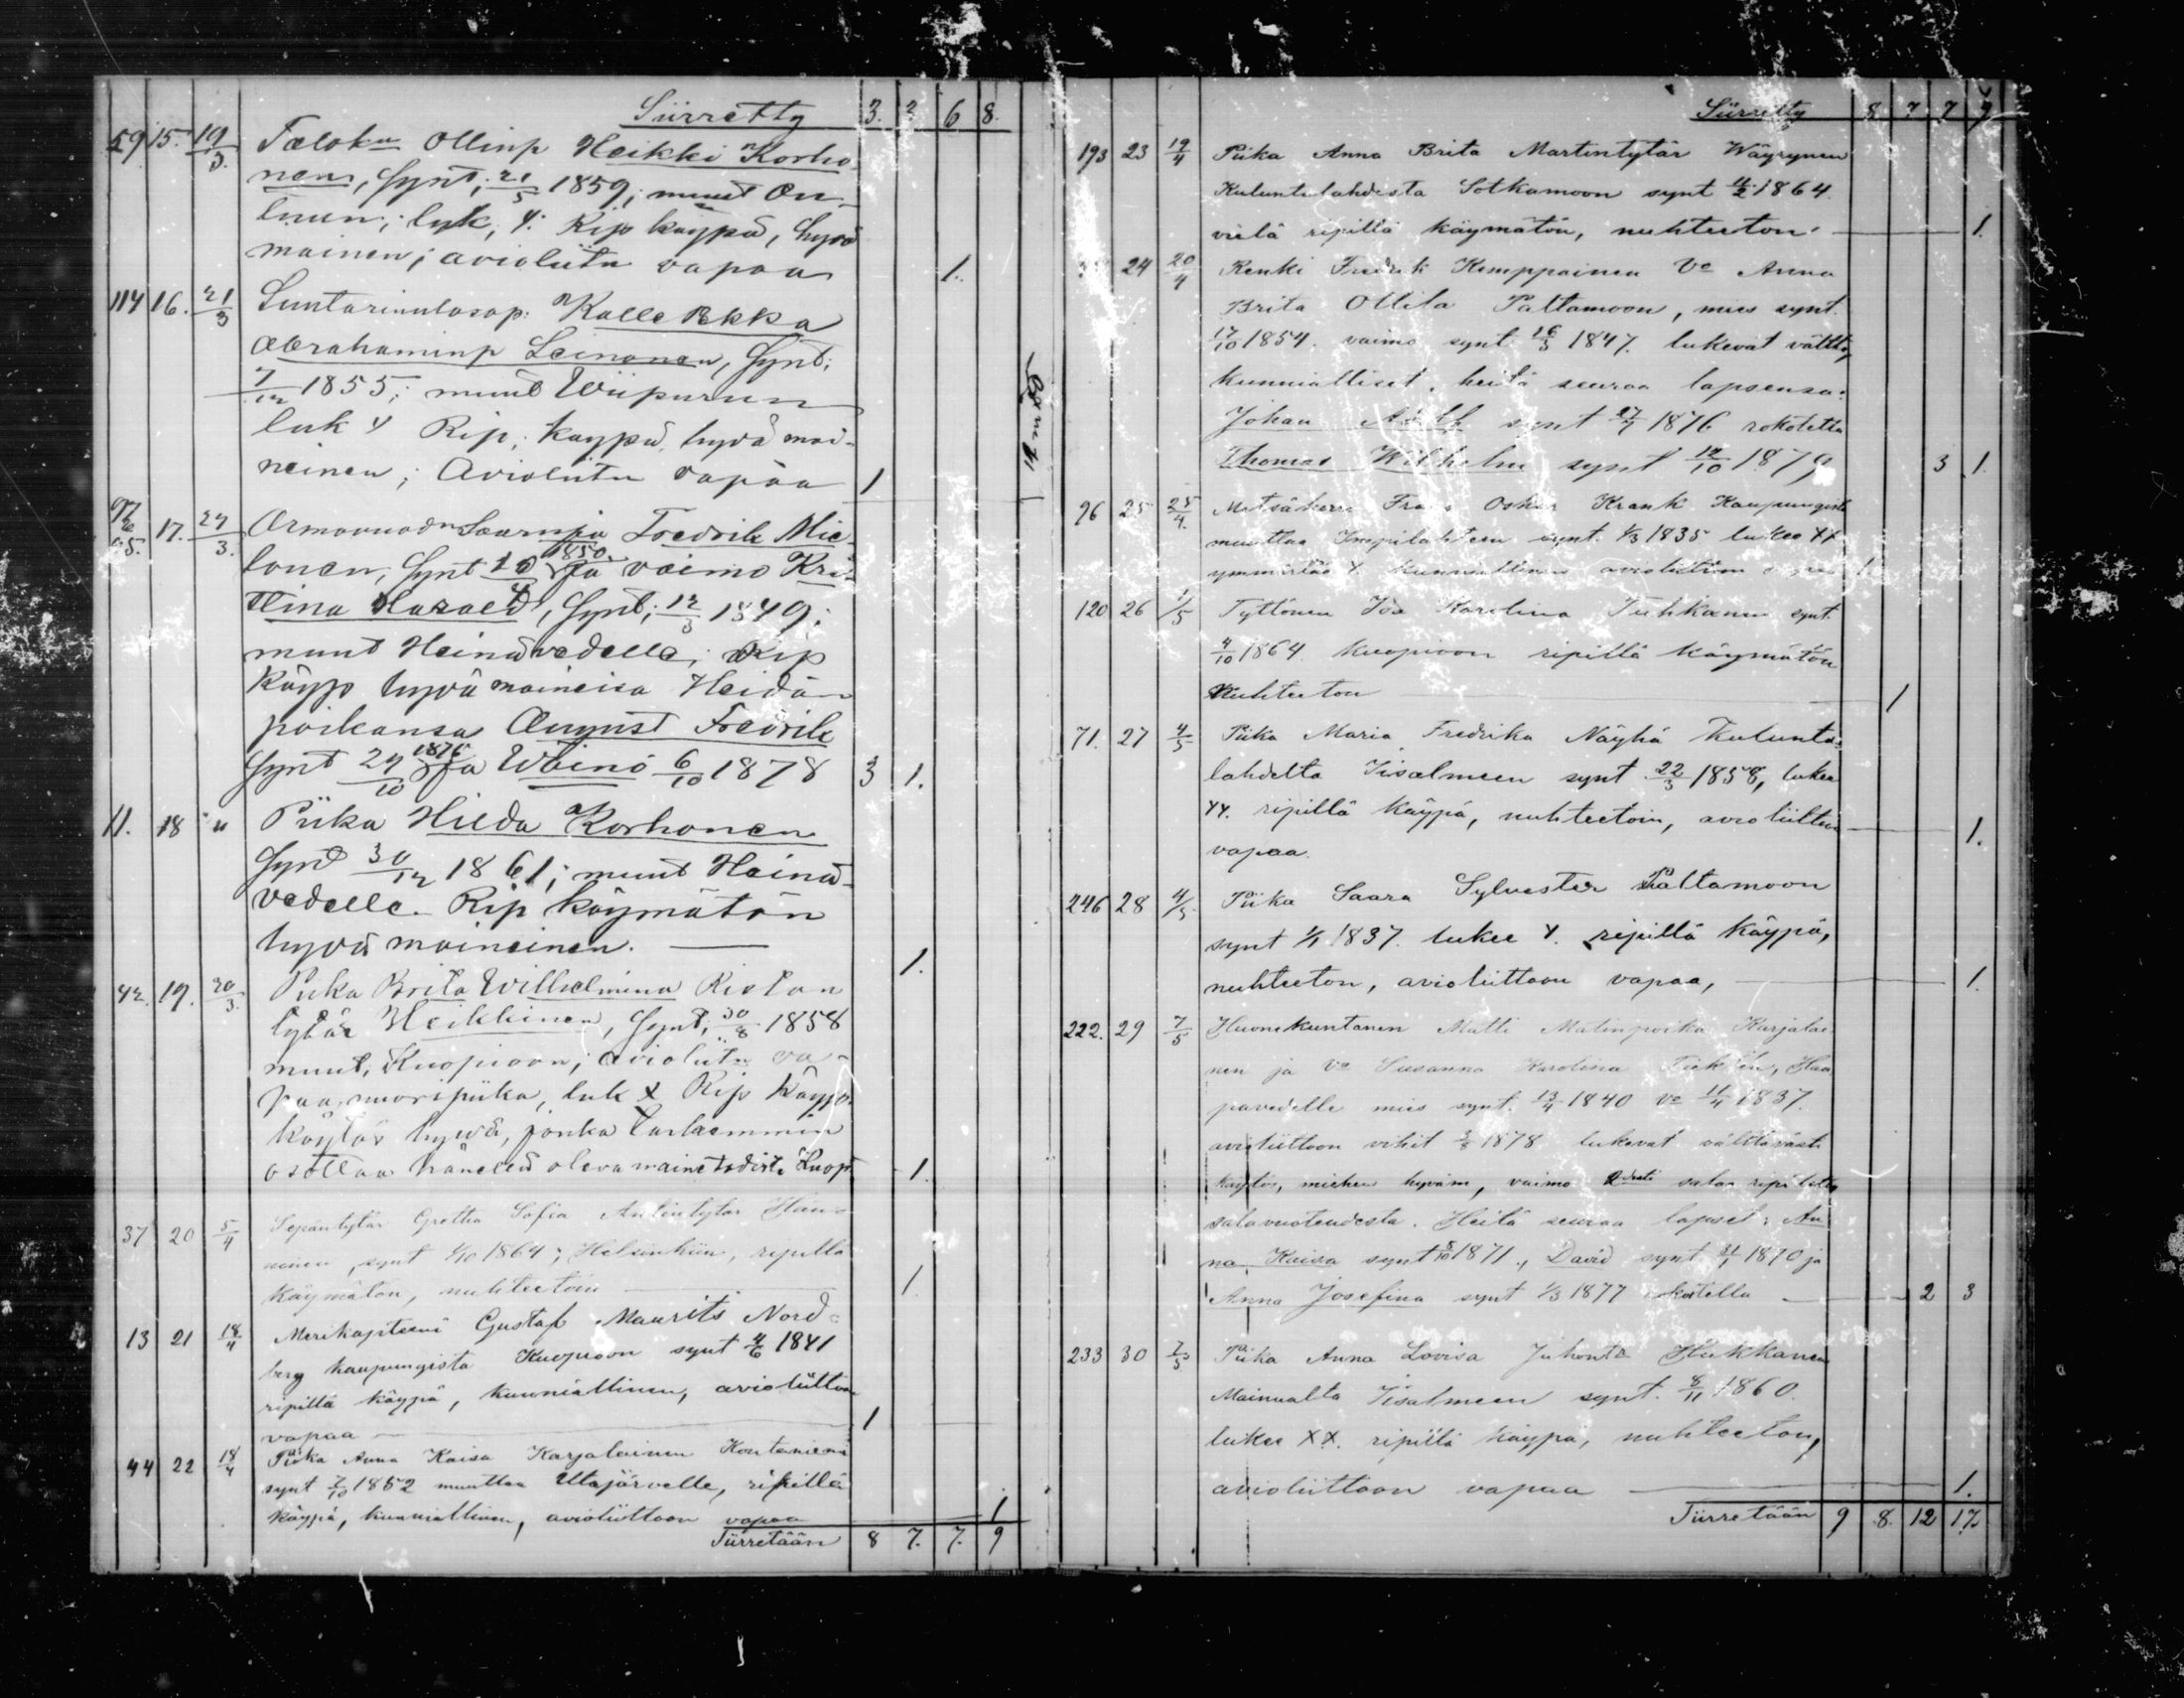 Siirretty 3. 2 6 8.
59 15. 19/3. Taloka Ollinp Heikki Korho
nen, Synt; 21/5 1859; muut Ou
luun; luk; Y. Rip käypä, hyvä
mainen; avioliittn vapaa 1.
114 16. 21/3 Kalle Pekka
Abrahaminp Leinonen, Synt;
7/12 1855; muut Wiipuriin
luk Y Rip; käypä, hyvä mai-
neinen; Avioliittn vapaa 1
17. 27/3. Armovuodn Saarnaja Fredrik Mie
lonen, Synt 10/4 1850 ja vaimo Kris
tina, Synt; 12/3 1849;
muut Heinävedelle; Rip
käyp hyvä maineisa Heidän
poikansa August Fredrik
Synt 29/10 1876 ja Wäinö 6/10 1878 3 1.
11. 18 " Piika Hilda Korhonen
Synt 30/12 1861; muut Heinä-
vedelle. Rip käymätön
hyvä maineinen. 1.
42. 19. 30/3. Piika Brita Wilhelmina Riston
tytär Heikkinen, Synt; 30/8 1858
muut, Kuopioon; avioliittn va-
paa, nuoripiika, luk X Rip käyp.
käytös hyvä, jonka tarkemmin
osottaa hänellä oleva maine todist. 1.
37 20 5/4 Sepäntytär Gretha Sofia Antintytär Hän-
ninen, synt 1/10 1864; Helsinkiin, ripillä
käymätön, nuhteetoin 1.
13 21 18/4 Merikapteeni Gustaf Maurits Nord-
berg kaupungista Kuopioon synt 4/6 1841
ripillä käypä, kunniallinen, avioliittoon
vapaa 1
44 22 18/4 Piika Anna Kaisa Karjalainen
synt 7/10 1852 muuttaa Utajärvelle, ripillä
käypä, kunniallinen, avioliittoon vapaa 1
Siirretään 8 7. 7. 9
Siirretty 8 7 7 9
193 23 19/4 Piika Anna Brita Martintytär Wäyrynen
Kuluntalahdesta Sotkamoon synt 11/2 1864.
vielä ripillä käymätön, nuhteeton 1.
24 20/4 Renki Fredrik Kemppainen Vo Anna
Brita Ottila Paltamoon, mies synt.
17/10 1854. vaimo synt. 16/3 1847. lukevat välttäv
kunnialliset, heitä seuraa lapsensa:
Johan synt 27/7 1876 rokotettu
Thomas Wilhelm synt 12/10 1879 3 1.
96 25 25/4. Metsäherra Frans Oskar Krank Kaupungista
muuttaa Impilahteen synt. 1/3 1835 lukee YY
ymmärtää Y. kunniallinen avioliittoon 1
120 26 1/5 Tyttönen Ida Karolina Tuhkanen synt.
4/10 1864. Kuopioon ripillä käymätön
Nuhteeton 1
71. 27 4/5 Piika Maria Fredrika Näyhä Kulunta-
lahdelta Iisalmeen synt 22/3 1858, lukee
YY. ripillä käypä, nuhteetoin, avioliittoon 1.
vapaa.
246 28 4/5 Piika Saara Sylvester Paltamoon
synt 1/1 1837. lukee Y. ripillä käypä,
nuhteeton, avioliittoon vapaa, 1.
222. 29 7/5 Huonekuntanen Matti Matinpoika Karjalai
nen ja Vo Susanna Karolina, Haa
pavedelle mies synt. 13/4 1840 Vo 11/4 1837.
avioliittoon vihit 3/3 1878 lukevat välttävästi
käytös, miehen hyväin, vaimo salaa ripitetty
salavuoteudesta. Heitä seuraa lapset: An
na Kaisa synt 8/10 1871., David synt 31/1 1870 ja
Anna Josefina synt 1/3 1877 2 3
233 30 7/5 Piika Anna Lovisa Juhontr Hukkanen
Mainualta Iisalmeen synt. 8/11 1860.
lukee XX. ripillä käypä, nuhteeton,
avioliittoon vapaa 1.
Siirretään 9 8. 12 17.